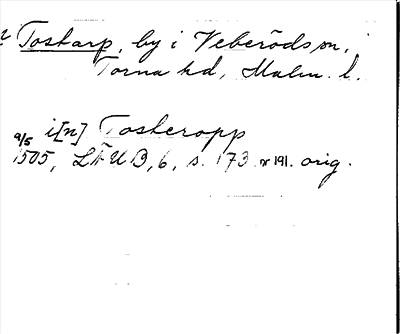 Toskarp, by i Veberöds sn,
Torna hd, Malm. l.
i[n] Toskeropp
9/5
1505, LÄUB, 6, s. 173. nr 191. orig.